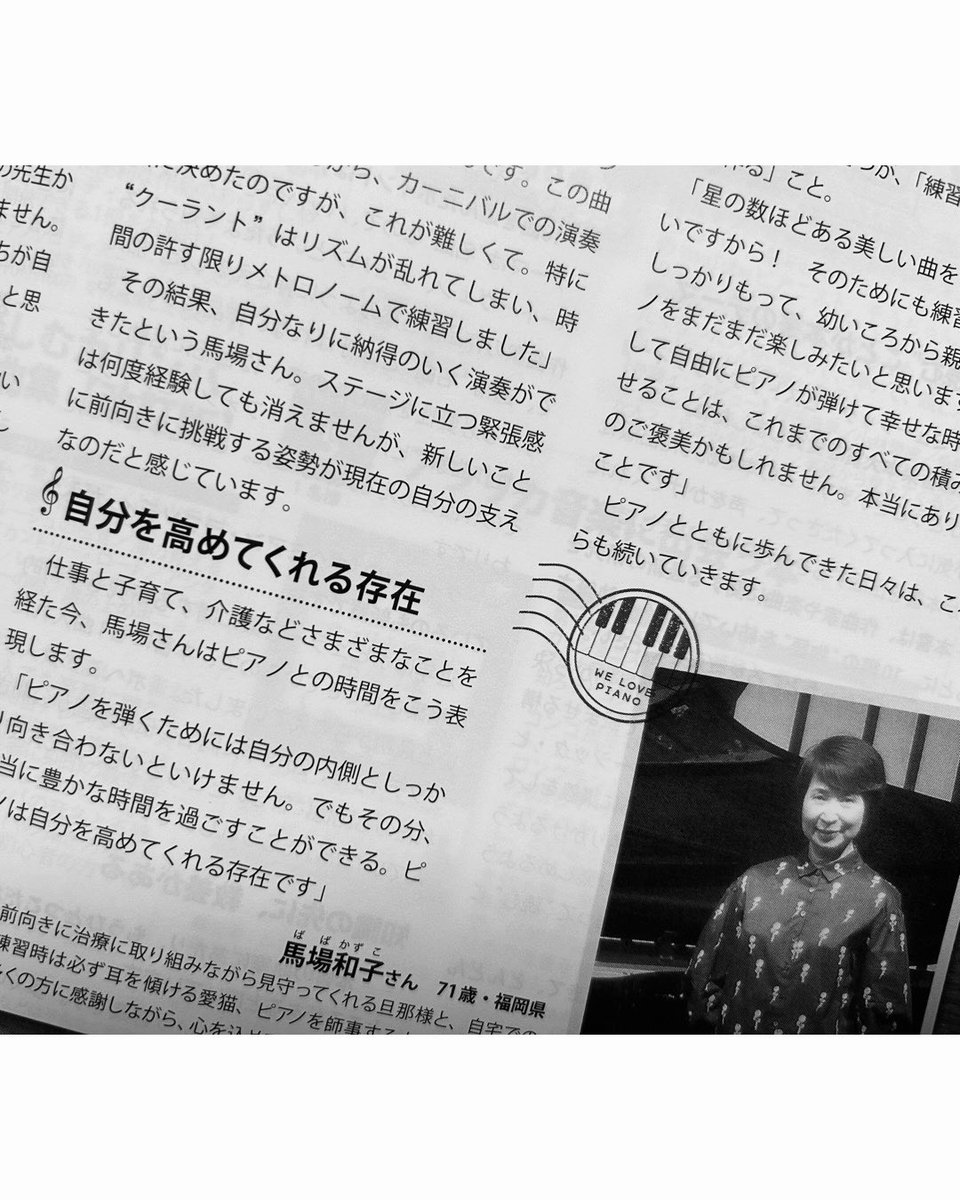 の先生か
ません。
ちが自
と思
い
に決めたのですが、これが難しくて。特に
から、カーニバルでの演奏
です。この曲
“クーラント”はリズムが乱れてしまい、時
間の許す限りメトロノームで練習しました」
その結果、自分なりに納得のいく演奏がで
きたという馬場さん。ステージに立つ緊張感
は何度経験しても消えませんが、新しいこと
に前向きに挑戦する姿勢が現在の自分の支え
なのだと感じています。
自分を高めてくれる存在
仕事と子育て、介護などさまざまなことを
経た今、馬場さんはピアノとの時間をこう表
現します。
「ピアノを弾くためには自分の内側としっか
り向き合わないといけません。でもその分、
当に豊かな時間を過ごすことができる。ピ
ノは自分を高めてくれる存在です」
ばばかずこ
馬場和子さん 71歳・福岡県
前向きに治療に取り組みながら見守ってくれる旦那様と、自宅での
練習時は必ず耳を傾ける愛猫、ピアノを師事する
くの方に感謝しながら、心を込め
が、「練習
る」こと。
「星の数ほどある美しい曲を
いですから！ そのためにも練習
しっかりもって、幼いころから親
ノをまだまだ楽しみたいと思います
して自由にピアノが弾けて幸せな時
せることは、これまでのすべての積み
のご褒美かもしれません。本当にあり
ことです」
ピアノとともに歩んできた日々は、これ
らも続いていきます。
WE LOVE
PIANO